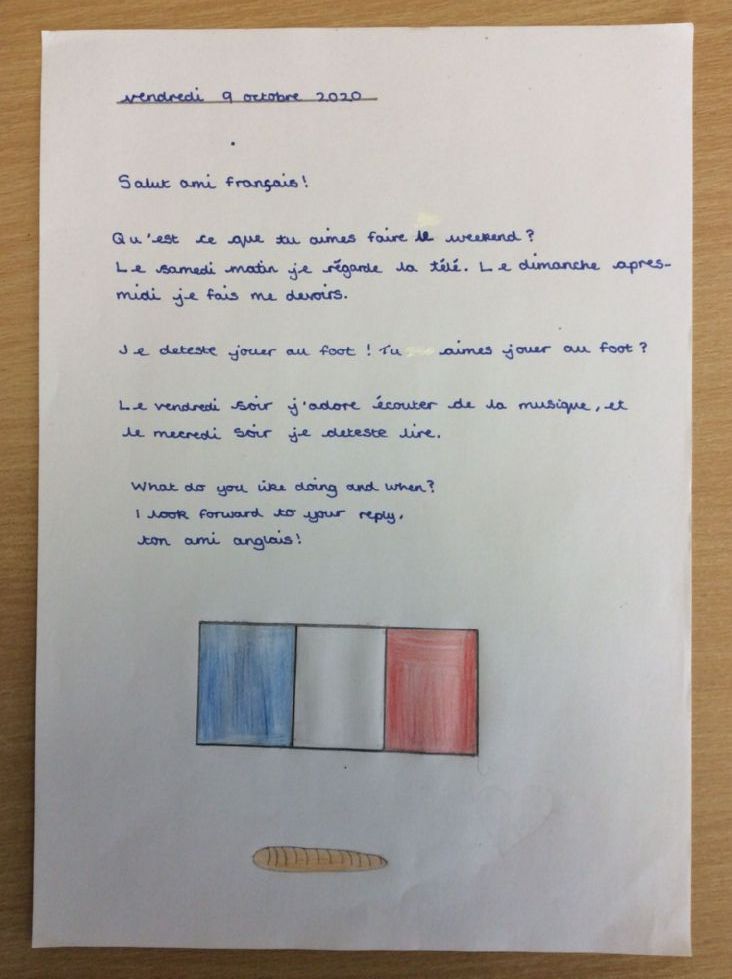 vendredi 9 octobre 2020
Salut ami français!
Qu'est ce que tu aimes faire le weekend?
Le samedi matin je régarde la télé. Le dimanche apres-
midi je fais me devoirs.
Je deteste jouer au foot! Tu aimes jouer au foot?
Le vendredi soir j'adore écouter de la musique, et
le mecredi soir je deteste lire.
What do you like doing and when?
I look forward to your reply,
ton ami anglais!